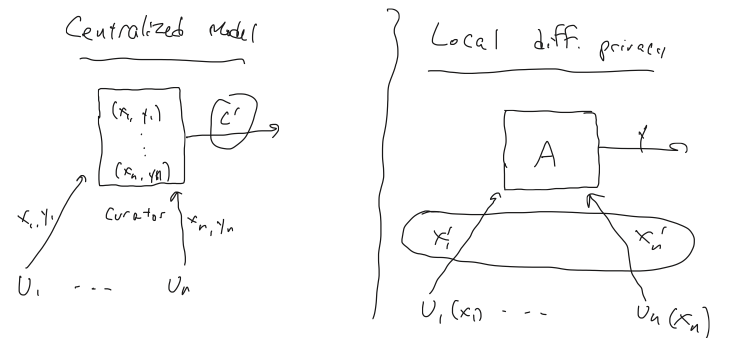 Centralized Model
(x₁, y₁)
⋮
(xₙ, yₙ)
C'
Curator
x₁, y₁
xₙ, yₙ
U₁ --- Uₙ
Local diff. privacy
A
y
x₁'
xₙ'
U₁ (x₁) - - - Uₙ (xₙ)